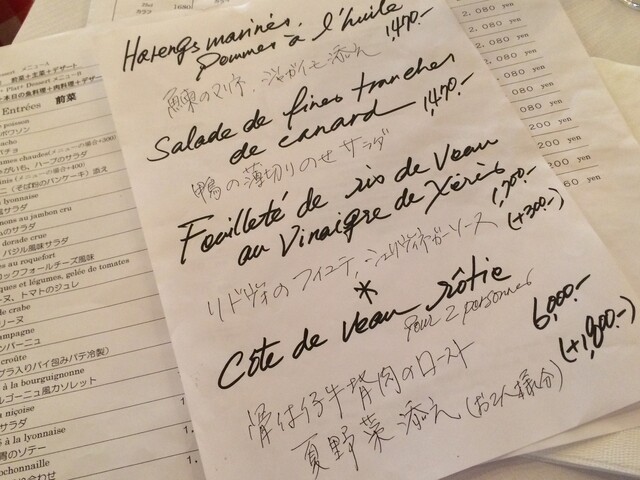 Harengs marinés,
Pommes à l'huile
鰊のマリネ、ジャガイモ添え
1,470.-
Salade de fines tranches
de canard
1,470.-
鴨の薄切りのせサラダ
Feuilleté de ris de veau
au Vinaigre de Xérès
1,700.-
(+300.-)
リドヴォのフィユテ、シェリーヴィネガーソース
*
Côte de veau rôtie
pour 2 personnes
6,000.-
(+1,800.-)
骨付仔牛背肉のロースト
夏野菜添え (お2人様分)
前菜+主菜+デザート
+ Plat+ Dessert メニューB
+本日の魚料理+肉料理+デザー
Entrées 前菜
poisson
acho
パチョ
がいも、ハーブのサラダ
lyonnaise
風サラダ
gnons au jambon cru
のサラダ
dorade crue
バジル風味サラダ
es au roquefort
ロックフォールチーズ風味
ques et légumes, gelée de tomates
ーヌ、トマトのジュレ
de crabe
リーヌ
ampagne
ンパーニュ
croûte
グラ入りパイ包みパテ冷製)
à la bourguignonne
ルゴーニュ風カソレット
niçoise
サラダ
à la lyonnaise
胃のソテー
ochonnaille
り合わせ
2,080 yen
2,080 yen
2,080 yen
2,080 yen
200 yen
200 yen
60 yen